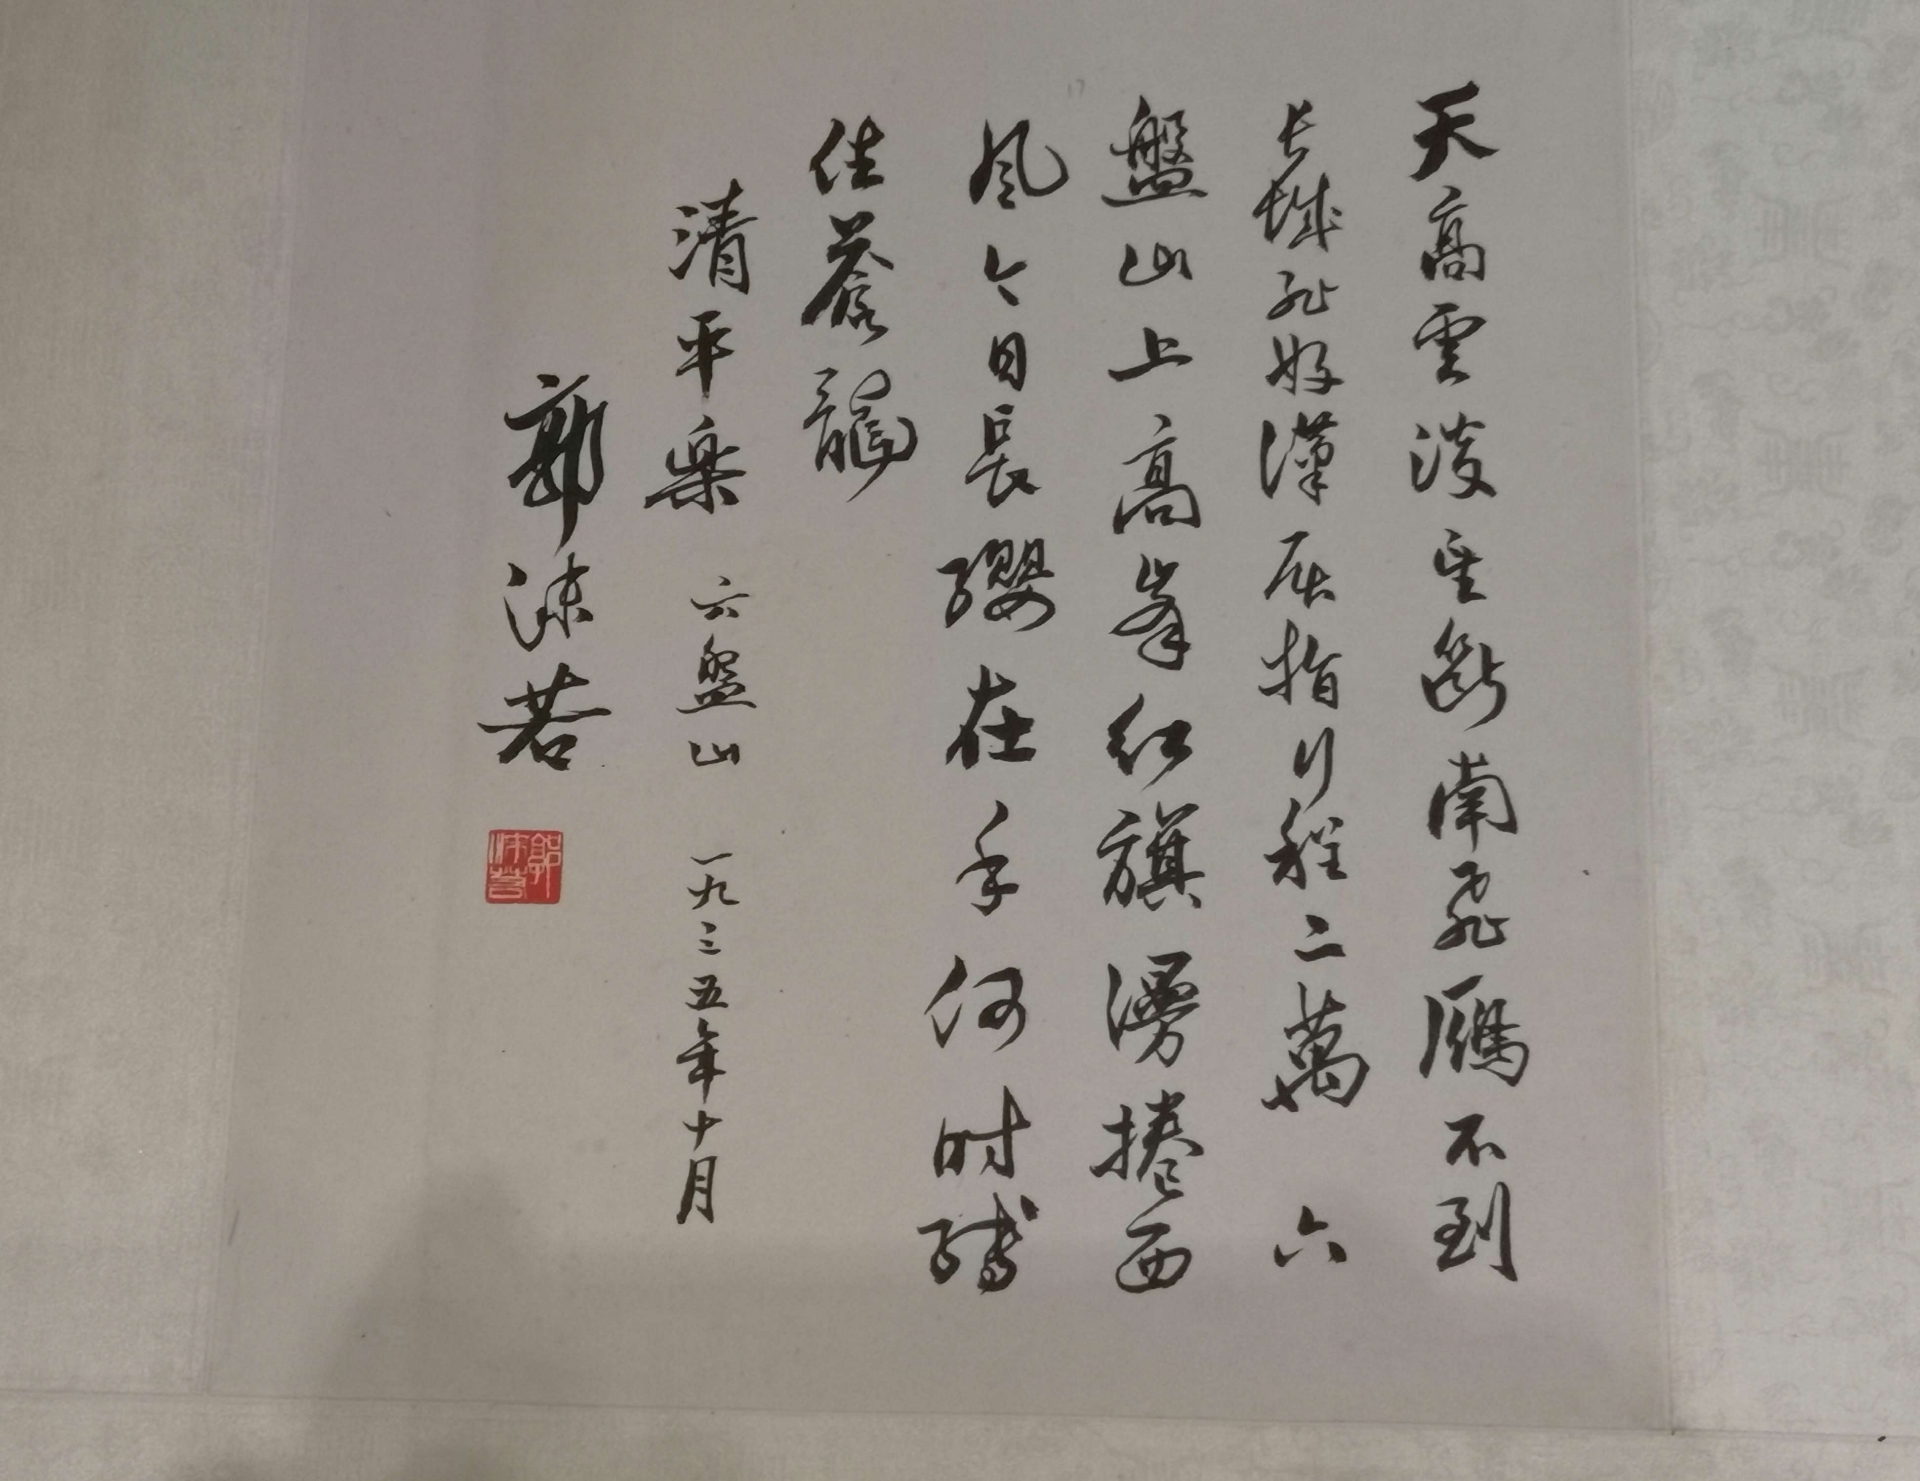 天高雲淡望斷南飛雁不到
長城非好漢屈指行程二萬 六
盤山上高峯红旗漫捲西
风今日長纓在手何时縛
住蒼龍
清平樂 六盤山 一九三五年十月
郭沫若
郭沫若